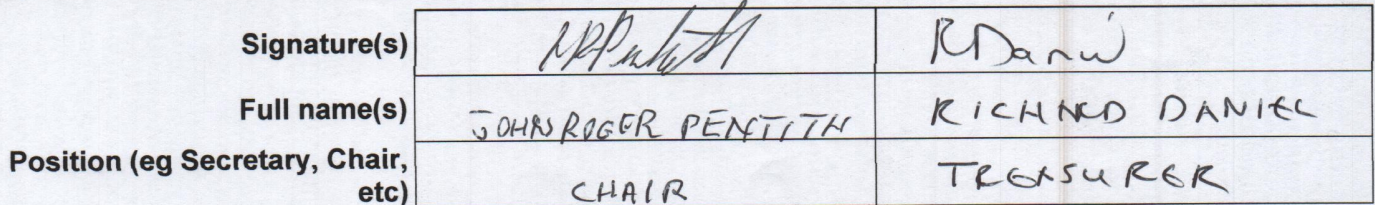 Signature(s) RDaniel
Full name(s) JOHN ROGER PENTITH RICHARD DANIEL
Position (eg Secretary, Chair,
etc) CHAIR TREASURER